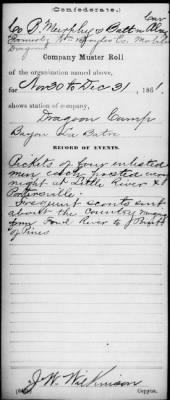 Confederate.
Cav
Co P. Murphy's Batt'n Ala
Dragoons
Company Muster Roll
of the organization named above,
for Nov 30 to Dec 31, 1861.
shows station of company,
Dragoon Camp
Bayou La Batre
RECORD OF EVENTS.
Pickets of four enlisted
men each posted every
night at Little River &
Portersville.
Frequent scouts sent
about the Country
from Fowl River to
of Pines
J W Wilkinson
Copyist.